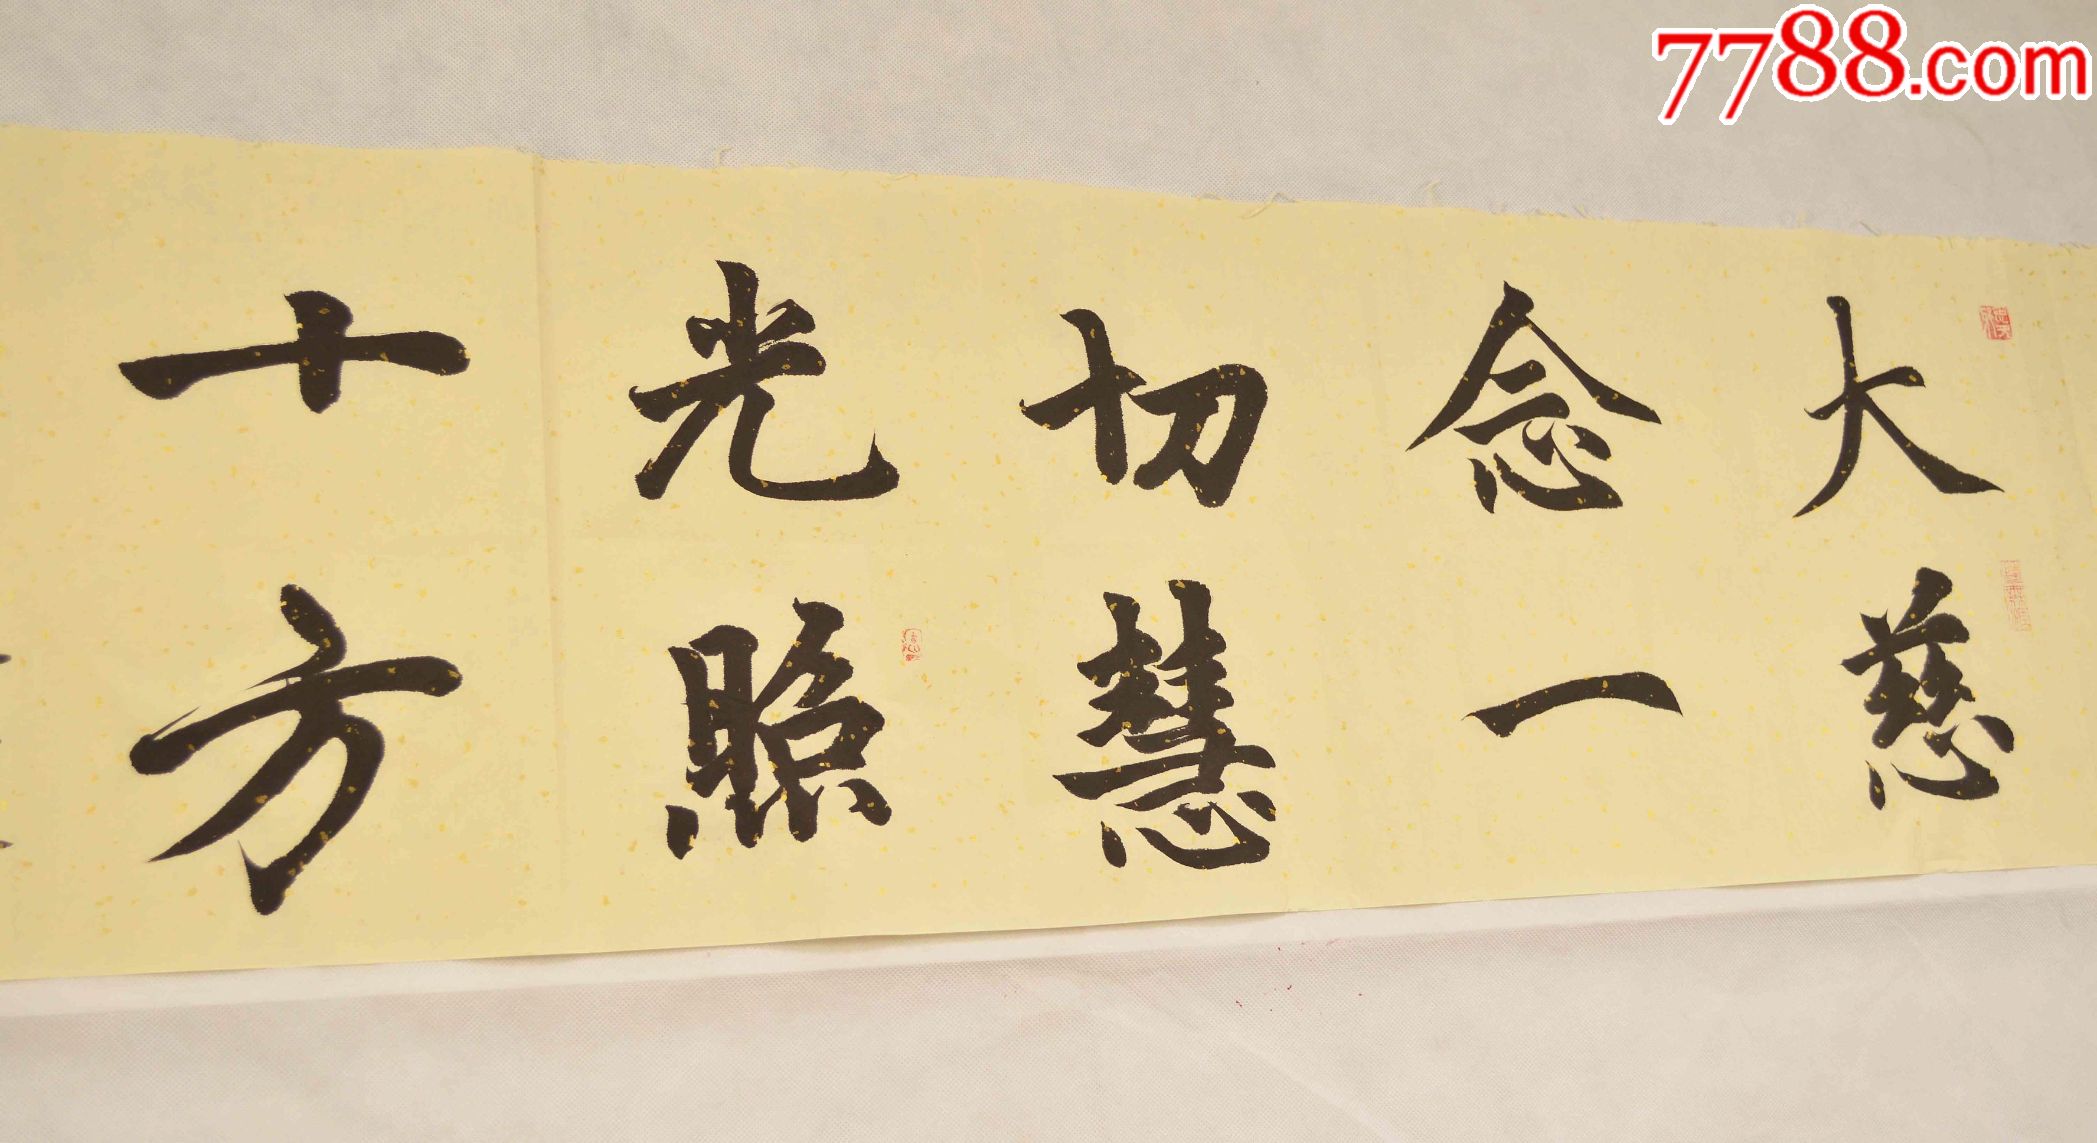 7788.com
大慈
念一
切慧
光照
十方